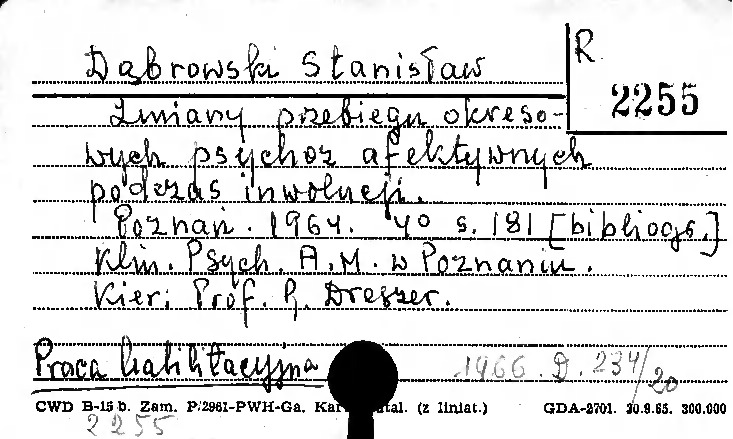 Dąbrowski Stanisław
R
2255
Zmiany przebiegu okreso-
wych psychoz afektywnych
podczas inwolucji.
Poznań. 1964. 4° s. 181 [bibliogr.]
Klin. Psych. A.M. w Poznaniu.
Kier: Prof. R. Dreszer.
Praca habilitacyjna
1966. D. 234/20
CWD B-15 b. Zam. P/2961-PWH-Ga. (z liniat.) GDA-2701. 30.9.65. 300.000
2255